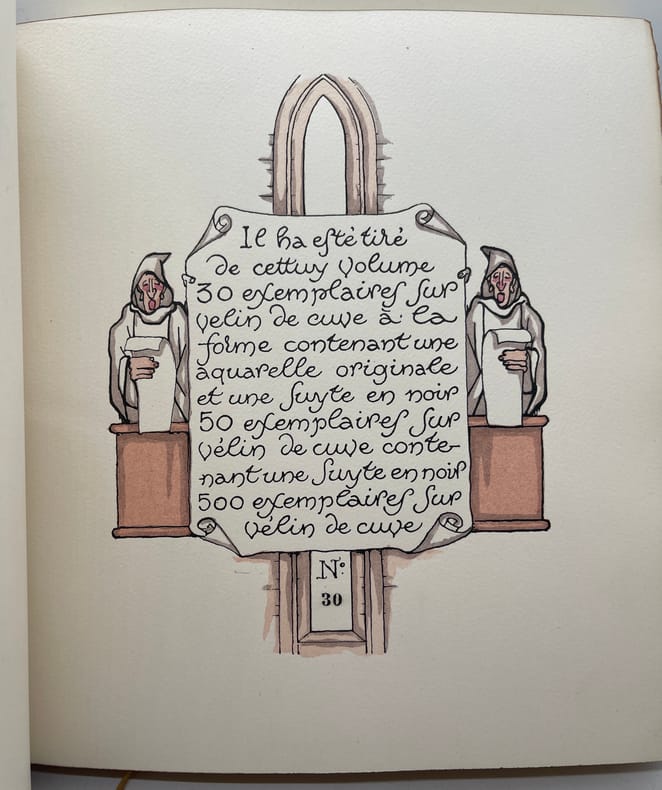 Il ha eſté tiré
de cettuy volume
30 exemplaires ſur
velin de cuve à la
forme contenant une
aquarelle originale
et une ſuyte en noir
50 exemplaires ſur
vélin de cuve conte-
nant une ſuyte en noir
500 exemplaires ſur
vélin de cuve
No.
30